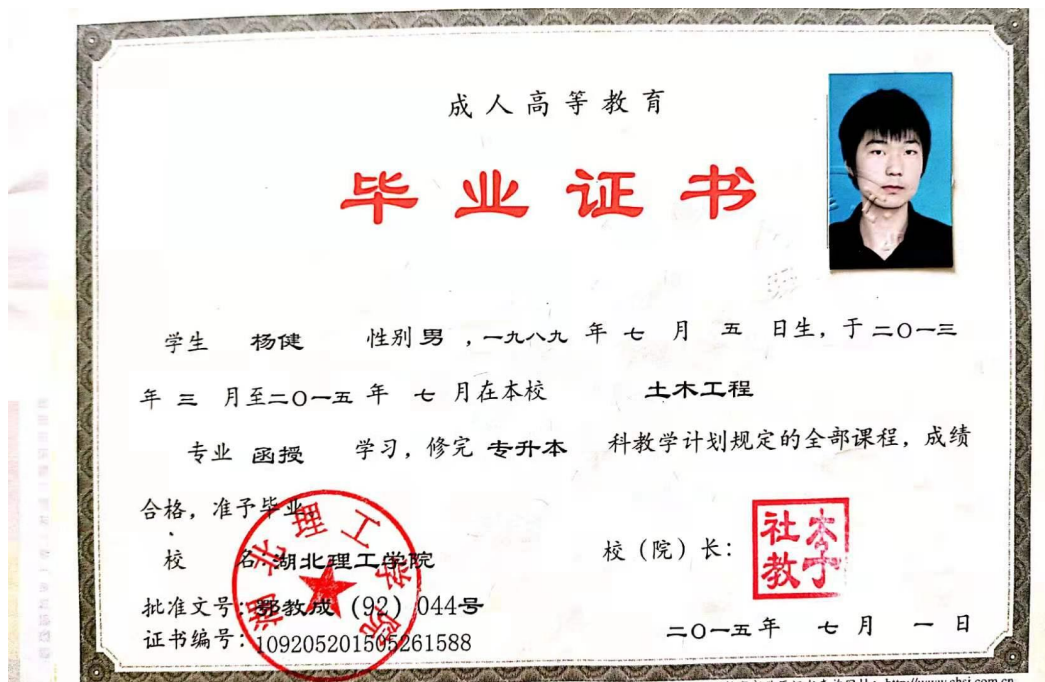 成人高等教育
毕业证书
学生 杨健 性别 男 ，一九八九 年 七 月 五 日生，于 二〇一三
年 三 月至二〇一五 年 七 月在本校 土木工程
专业 函授 学习，修完 专升本 科教学计划规定的全部课程，成绩
合格，准予毕业。
校 名：湖北理工学院
校（院）长：
社教
李
批准文号：鄂教成（92）044号
证书编号：109205201505261588
二〇一五年 七 月 一 日
湖北理工学院
http://www.chsi.com.cn